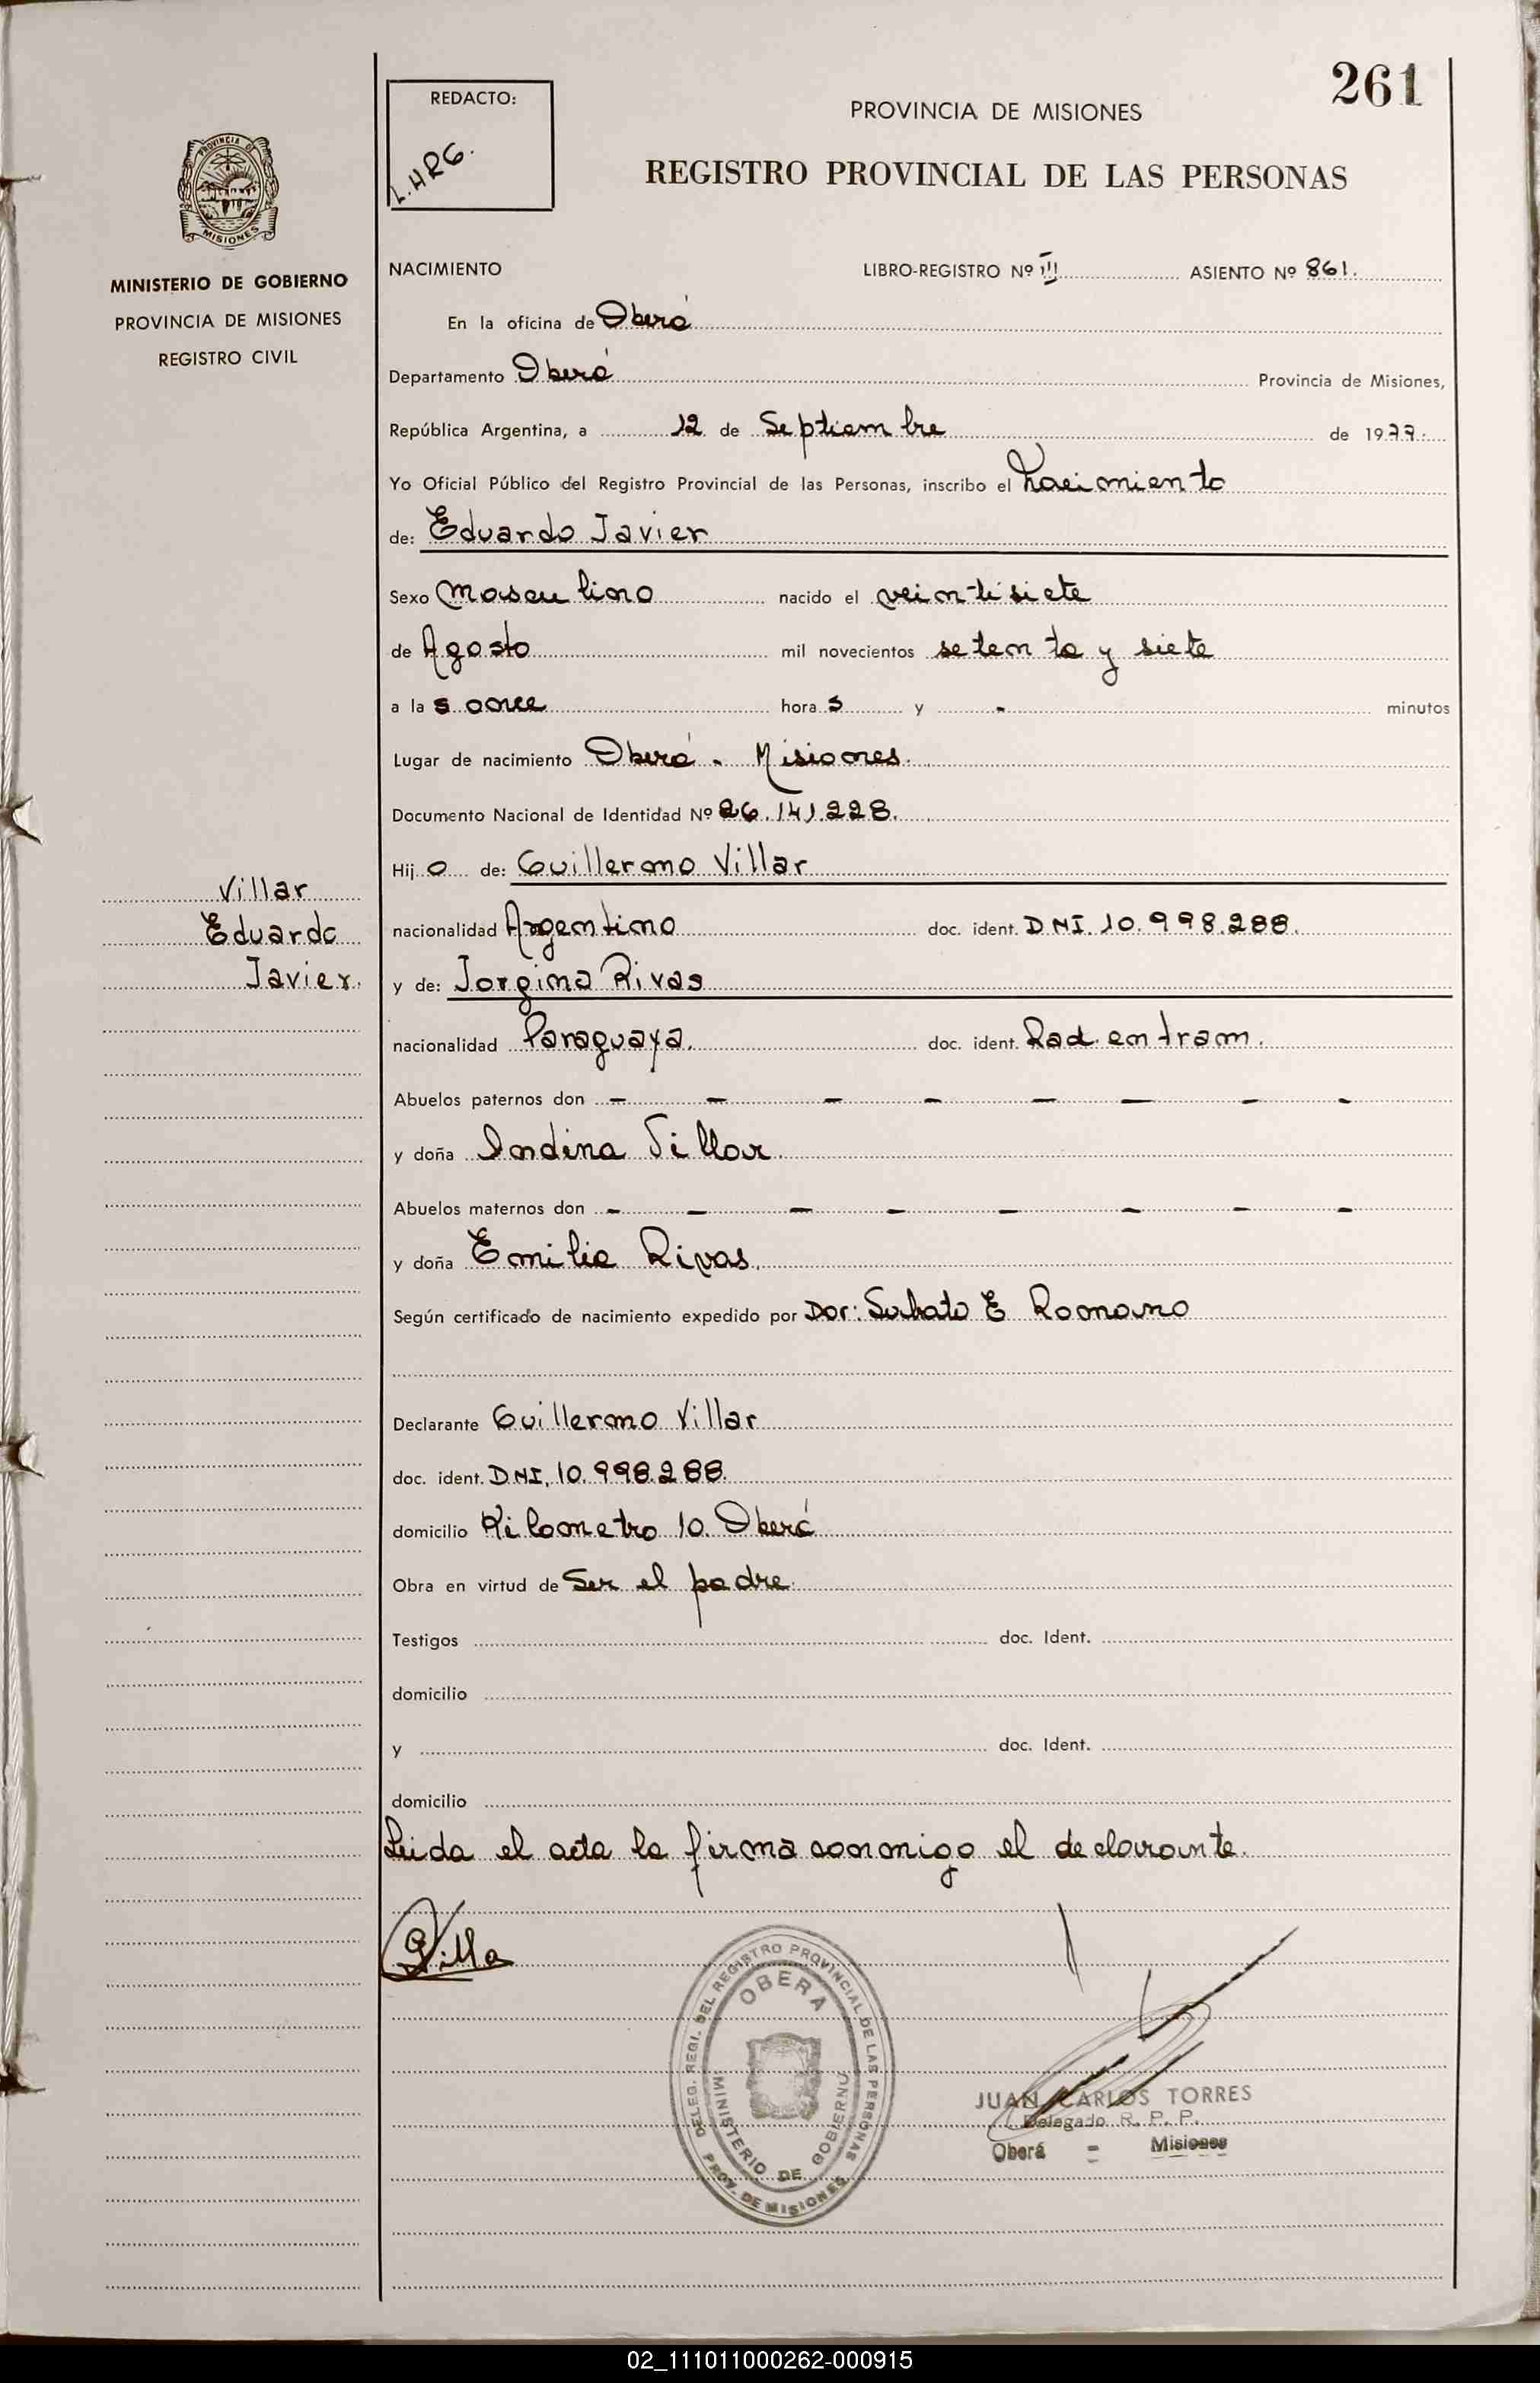 261
REDACTO:
L.HRG.
PROVINCIA DE MISIONES
REGISTRO PROVINCIAL DE LAS PERSONAS
PROVINCIA DE
MISIONES
MINISTERIO DE GOBIERNO
PROVINCIA DE MISIONES
REGISTRO CIVIL
NACIMIENTO LIBRO-REGISTRO Nº III ASIENTO Nº 861.
En la oficina de Oberá
Departamento Oberá Provincia de Misiones,
República Argentina, a 12 de Septiembre de 1977.
Yo Oficial Público del Registro Provincial de las Personas, inscribo el nacimiento
de: Eduardo Javier
Sexo masculino nacido el veintisiete
de Agosto mil novecientos setenta y siete
a las once horas y - minutos
Lugar de nacimiento Oberá - Misiones.
Documento Nacional de Identidad Nº 26.141.228.
Hijo de: Guillermo Villar
Villar
Eduardo
Javier.
nacionalidad Argentino doc. ident. DNI. 10.998.288.
y de: Jorgina Rivas
nacionalidad Paraguaya. doc. ident. Rad. en tram.
Abuelos paternos don - - - - - - - -
y doña Indina Villar.
Abuelos maternos don - - - - - - - -
y doña Emilia Rivas.
Según certificado de nacimiento expedido por Dor: Sabato E Romano
Declarante Guillermo Villar
doc. ident. DNI. 10.998.288.
domicilio Kilometro 10. Oberá
Obra en virtud de Ser el padre.
Testigos doc. Ident.
domicilio
y doc. Ident.
domicilio
Leida el acta la firma conmigo el declarante.
GVilla
DELEG. REGI. DEL REGISTRO PROVINCIAL DE LAS PERSONAS
OBERA
MINISTERIO DE GOBIERNO
PROV. DE MISIONES
JUAN CARLOS TORRES
Delegado R. P. P.
Oberá - Misiones
02_111011000262-000915